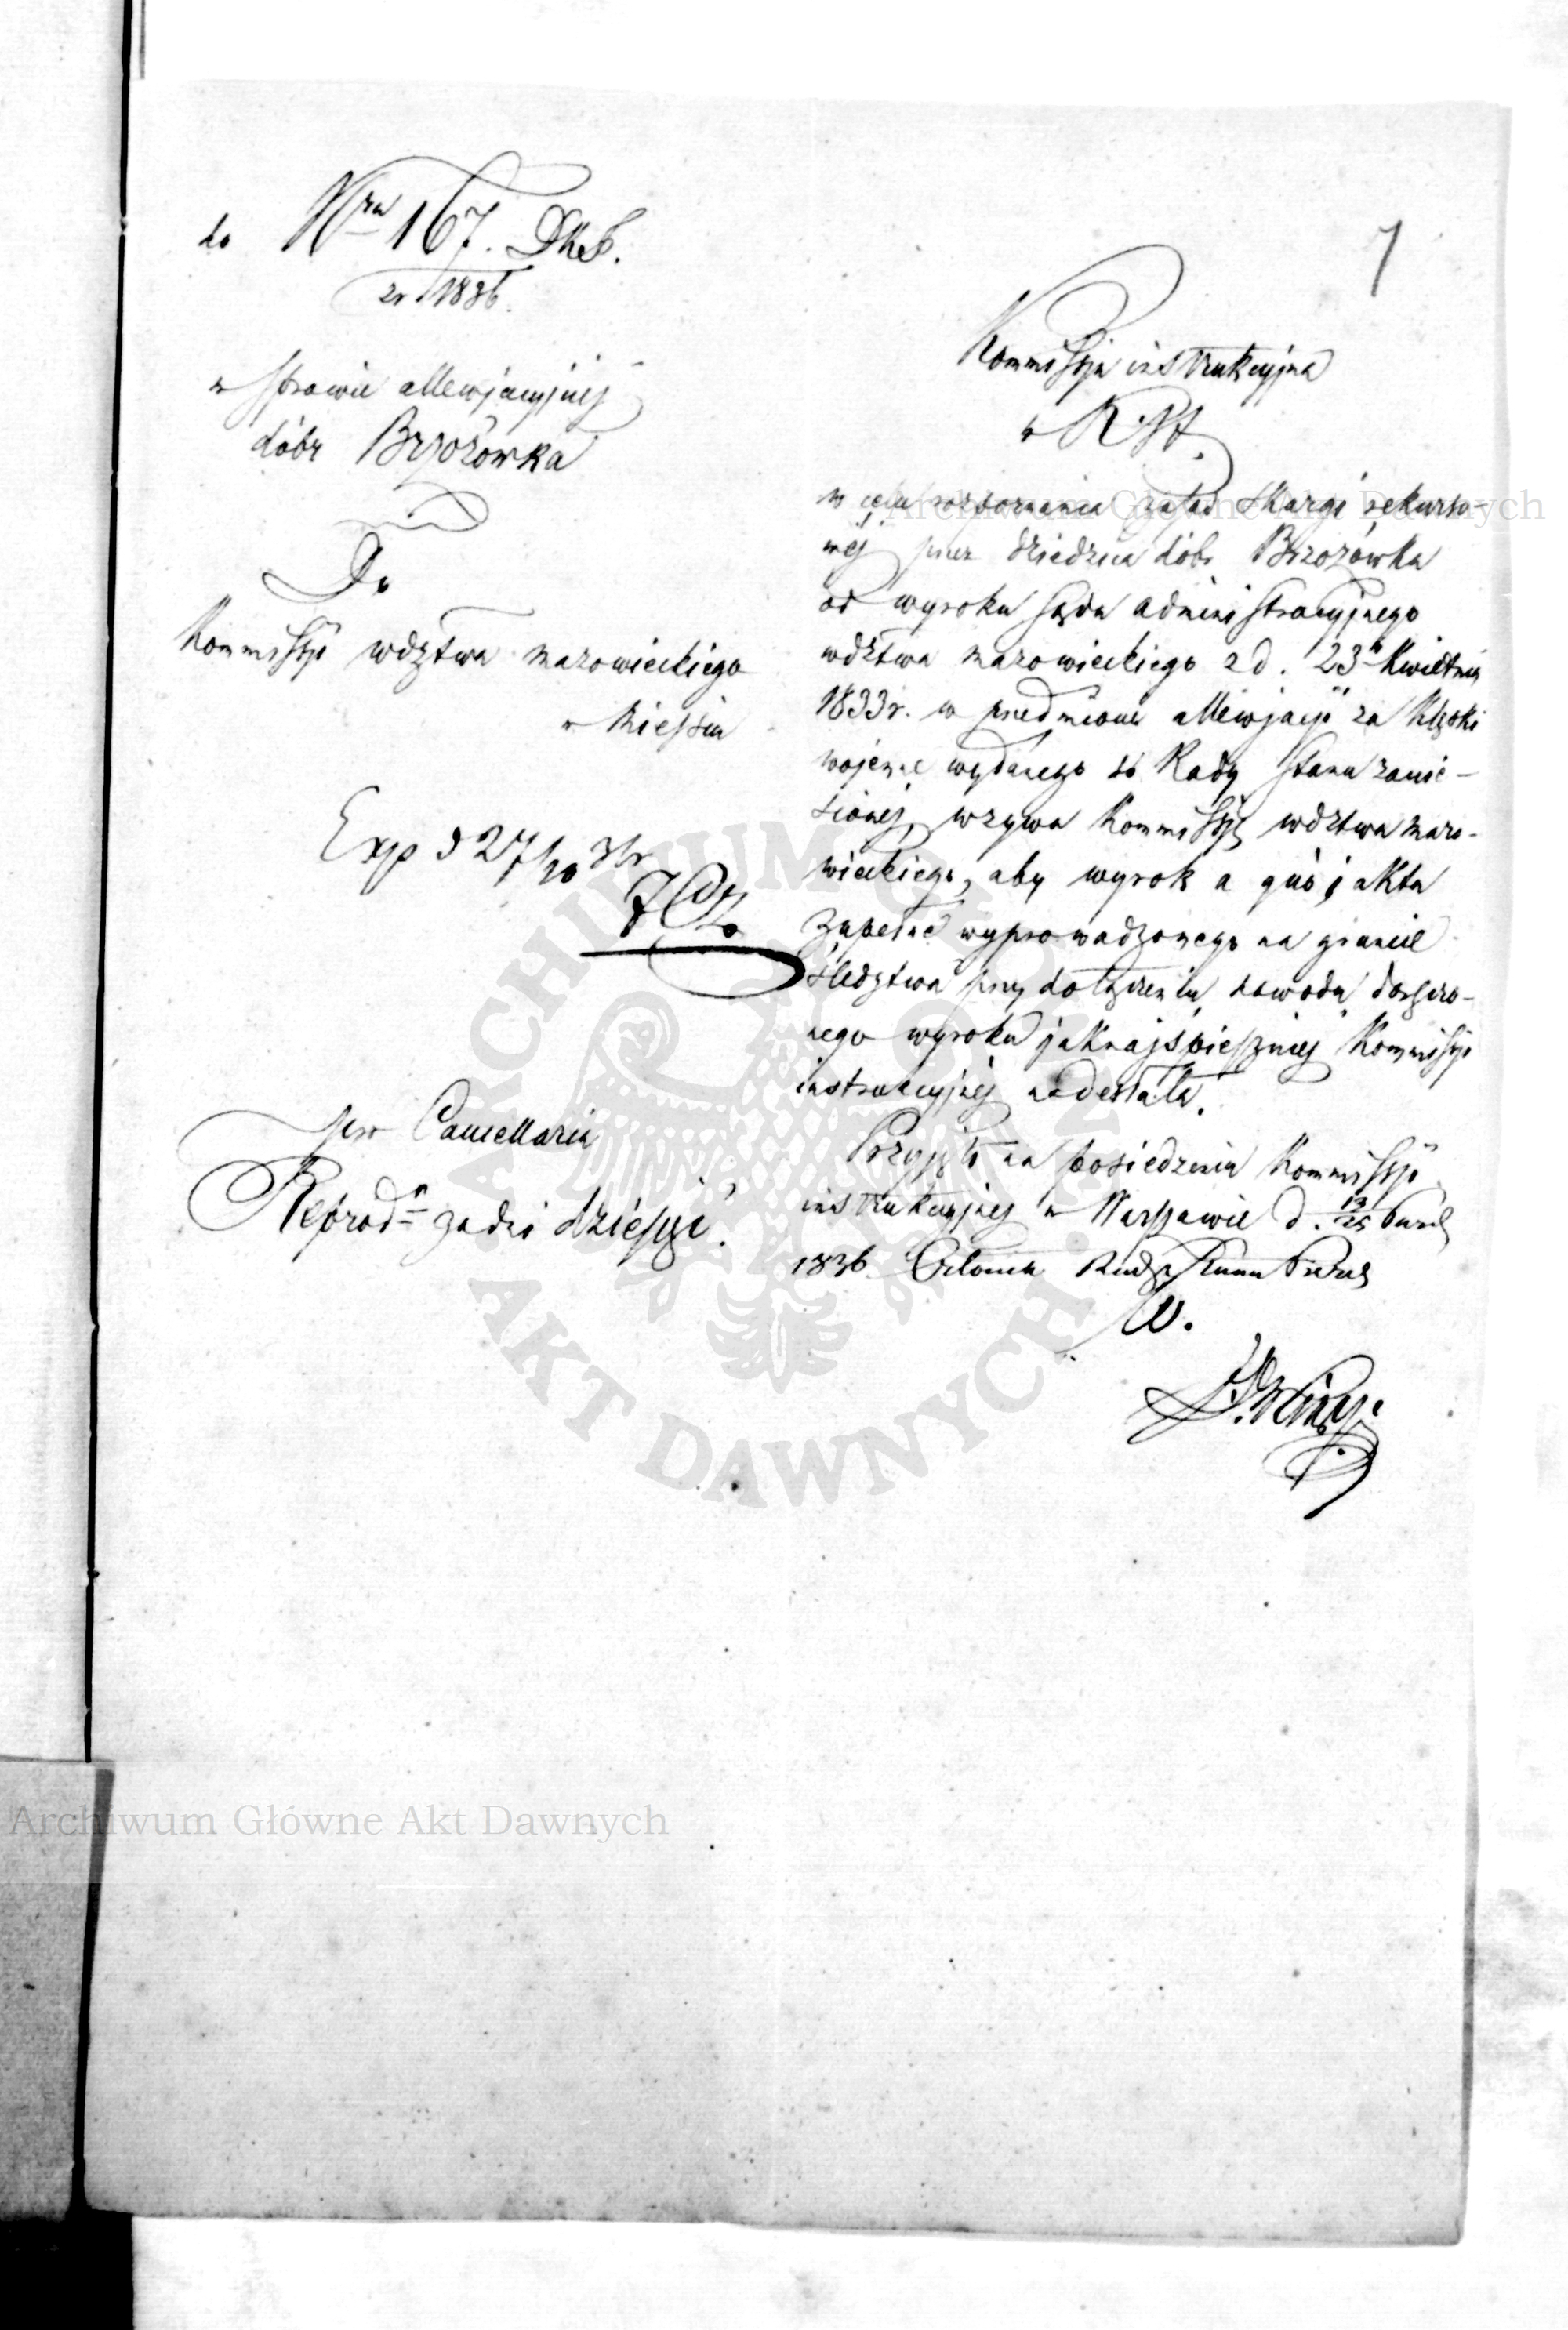 do Nru 167. DKS.
zr 1836.
w sprawie allewjacyjnej
dóbr Brzozówka
Do
Kommissyi wdztwa mazowieckiego
w Mieyscu
Exp d 27/10 36r
per Cancellaria
Reprod za dni dziesięć.
7
Kommissyja instrukcyjna
w R. St.
w celu rozpoznania zasad skargi rekurso-
wéj przez dziedzica dóbr Brzozówka
od wyroku sądu administracyjnego
wdztwa mazowieckiego z d. 23 Kwietnia
1833 r. w przedmiocie allewjacyi za klęski
wojenne wydanego do Rady Stanu zanie-
sionéj, wzywa Kommissyą wdztwa mazo-
wieckiego, aby wyrok a quo i akta
zupełne wyprowadzonego na gruncie
śledztwa przy dołączeniu dowodu doręczo-
nego wyroku jaknajspieszniéj Kommissyi
instrukcyjnéj nadesłała.
Przyjęto na posiedzeniu Kommissyi
instrukcyjnéj w Warszawie d. 13/25
1836 Członek Rady Stanu
Archiwum Główne Akt Dawnych
ARCHIWUM GŁÓWNE
AKT DAWNYCH
Archiwum Główne Akt Dawnych